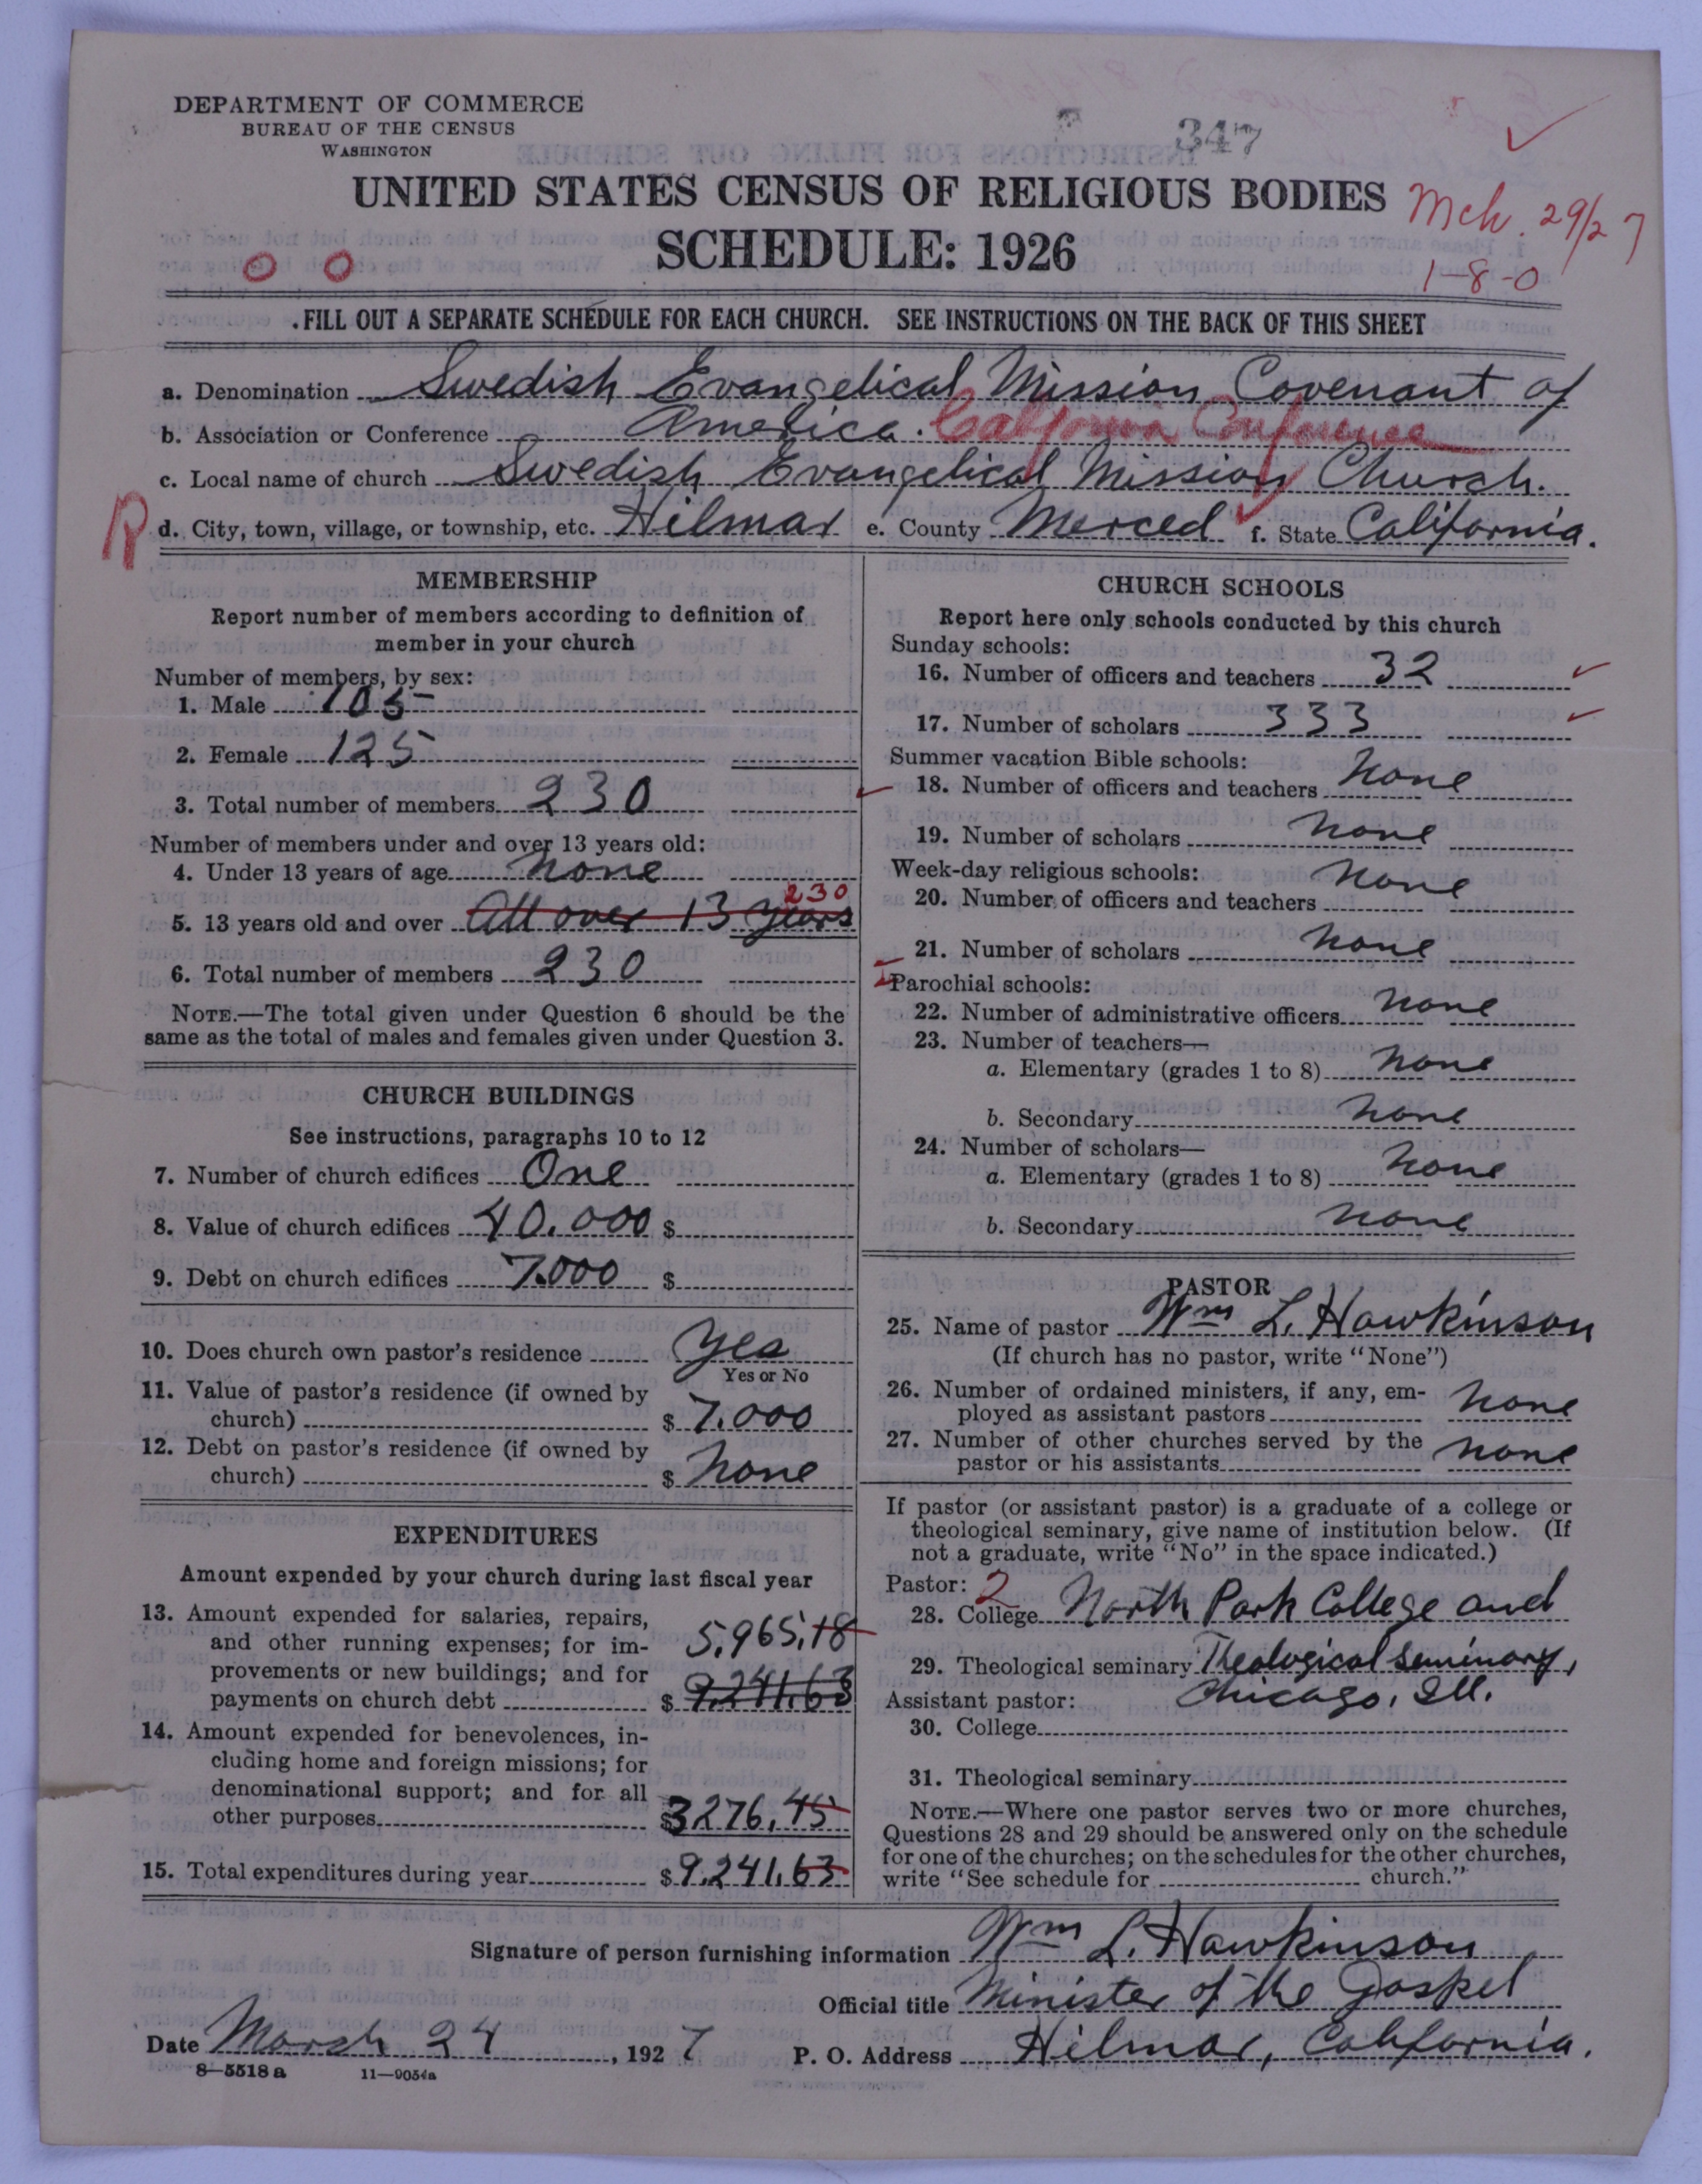 DEPARTMENT OF COMMERCE
BUREAU OF THE CENSUS
WASHINGTON
347
UNITED STATES CENSUS OF RELIGIOUS BODIES
Mch. 29/27
SCHEDULE: 1926
1-8-0
0 0
FILL OUT A SEPARATE SCHEDULE FOR EACH CHURCH. SEE INSTRUCTIONS ON THE BACK OF THIS SHEET
a. Denomination Swedish Evangelical Mission Covenant of
b. Association or Conference America. California Conference
c. Local name of church Swedish Evangelical Mission Church.
R
d. City, town, village, or township, etc. Hilmar e. County Merced f. State California.
MEMBERSHIP
Report number of members according to definition of
member in your church
Number of members, by sex:
1. Male 105
2. Female 125
3. Total number of members 230
Number of members under and over 13 years old:
4. Under 13 years of age None
230
5. 13 years old and over All over 13 years
6. Total number of members 230
NOTE.—The total given under Question 6 should be the
same as the total of males and females given under Question 3.
CHURCH BUILDINGS
See instructions, paragraphs 10 to 12
7. Number of church edifices One
8. Value of church edifices 40.000 $
9. Debt on church edifices 7.000 $
10. Does church own pastor's residence Yes
Yes or No
11. Value of pastor's residence (if owned by
church) $ 7.000
12. Debt on pastor's residence (if owned by
church) $ None
EXPENDITURES
Amount expended by your church during last fiscal year
13. Amount expended for salaries, repairs,
and other running expenses; for im- 5.965.18
provements or new buildings; and for
payments on church debt $ 9.241.63
14. Amount expended for benevolences, in-
cluding home and foreign missions; for
denominational support; and for all
other purposes $3276.45
15. Total expenditures during year $9.241.63
CHURCH SCHOOLS
Report here only schools conducted by this church
Sunday schools:
16. Number of officers and teachers 32
17. Number of scholars 333
Summer vacation Bible schools:
18. Number of officers and teachers None
19. Number of scholars None
Week-day religious schools:
20. Number of officers and teachers None
21. Number of scholars None
Parochial schools:
22. Number of administrative officers None
23. Number of teachers—
a. Elementary (grades 1 to 8) None
b. Secondary None
24. Number of scholars—
a. Elementary (grades 1 to 8) None
b. Secondary None
PASTOR
25. Name of pastor Wm L. Hawkinson
(If church has no pastor, write "None")
26. Number of ordained ministers, if any, em-
ployed as assistant pastors None
27. Number of other churches served by the
pastor or his assistants None
If pastor (or assistant pastor) is a graduate of a college or
theological seminary, give name of institution below. (If
not a graduate, write "No" in the space indicated.)
Pastor: 2
28. College North Park College and
29. Theological seminary Theological Seminary,
Assistant pastor: Chicago, Ill.
30. College
31. Theological seminary
NOTE.—Where one pastor serves two or more churches,
Questions 28 and 29 should be answered only on the schedule
for one of the churches; on the schedules for the other churches,
write "See schedule for church."
Signature of person furnishing information Wm L. Hawkinson
Official title Minister of the Gospel
Date March 24, 1927 P. O. Address Hilmar, California.
8—5518a 11—9054a